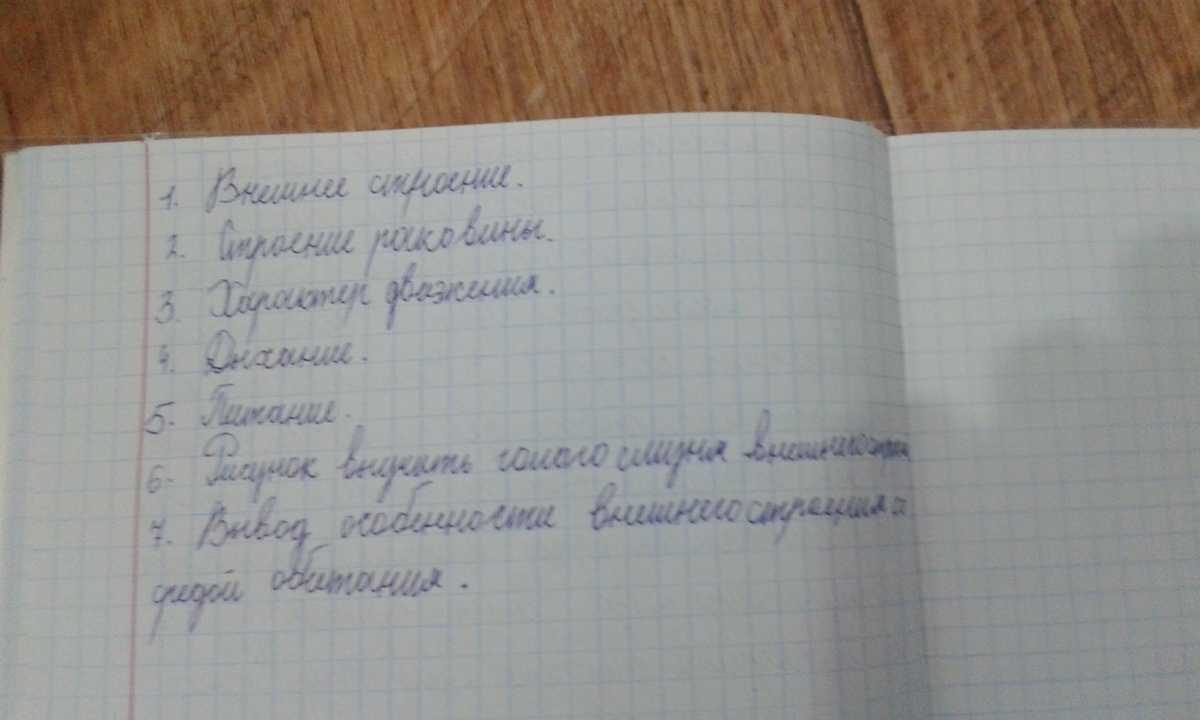 1. Внешнее строение.
2. Строение раковины.
3. Характер движения.
4. Дыхание.
5. Питание.
6. Рисунок голого слизня внешнего
7. Вывод особенности внешнего строения с
средой обитания.